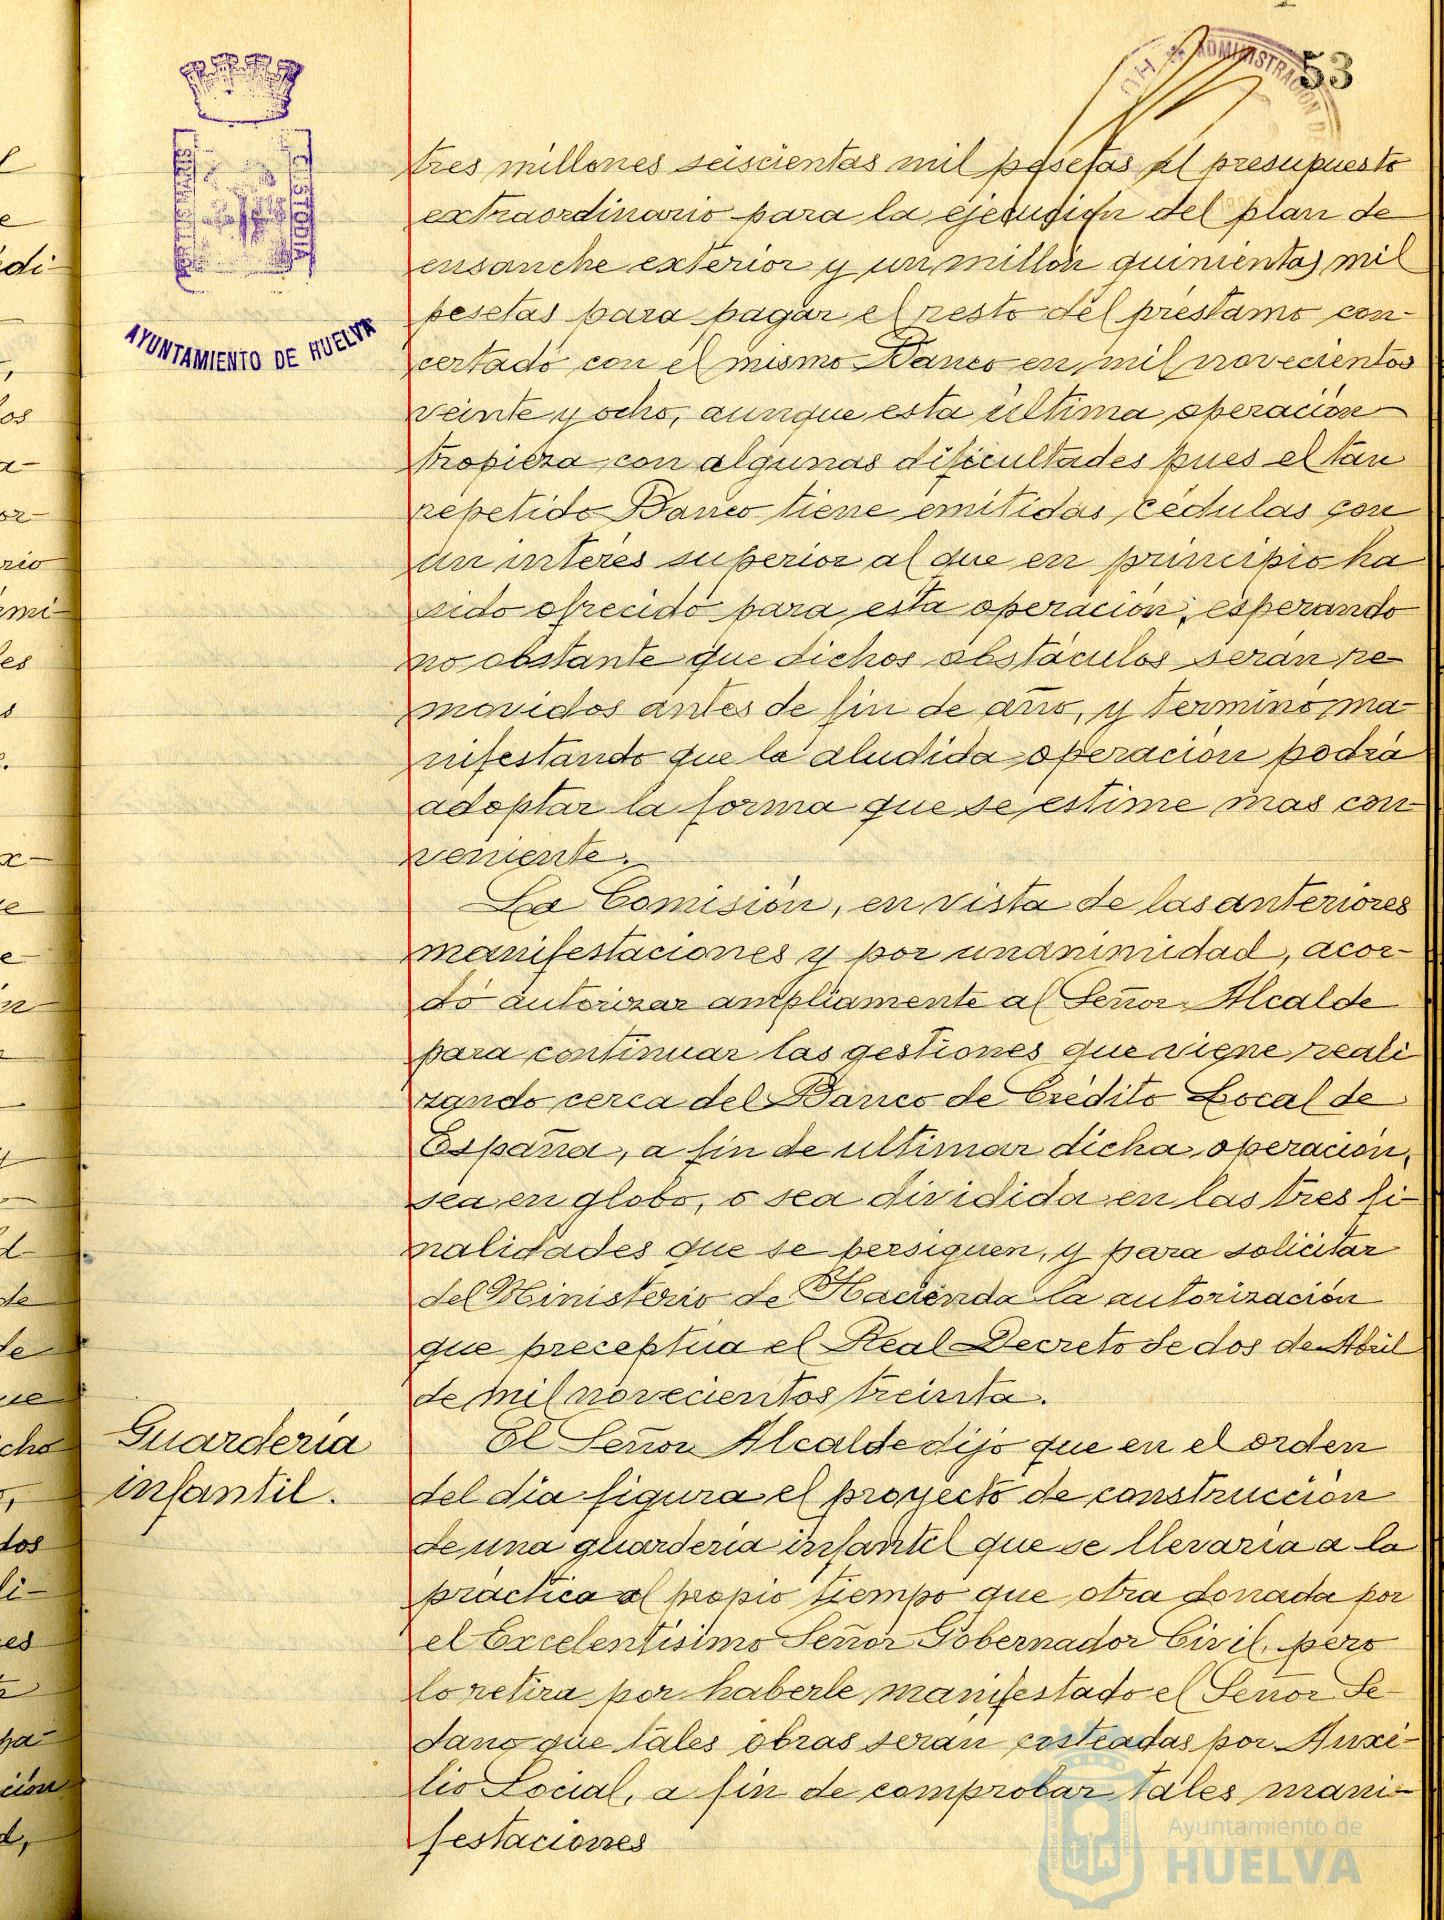 53
ADMINISTRACIÓN D
HU
PORTUS MARIS
CUSTODIA
AYUNTAMIENTO DE HUELVA
tres millones seiscientas mil pesetas al presupuesto
extraordinario para la ejecución del plan de
ensanche exterior y un millón quinientas mil
pesetas para pagar el resto del préstamo con-
certado con el mismo Banco en mil novecientos
veinte y ocho, aunque esta última operación
tropieza con algunas dificultades pues el tan
repetido Banco tiene emitidas cédulas con
un interés superior al que en principio ha
sido ofrecido para esta operación, esperando
no obstante que dichos obstáculos serán re-
movidos antes de fin de año, y terminó ma-
nifestando que la aludida operación podrá
adoptar la forma que se estime mas con-
veniente.
La Comisión, en vista de las anteriores
manifestaciones y por unanimidad, acor-
dó autorizar ampliamente al Señor Alcalde
para continuar las gestiones que viene reali
zando cerca del Banco de Crédito Local de
España, a fin de ultimar dicha operación,
sea en globo, o sea dividida en las tres fi-
nalidades que se persiguen, y para solicitar
del Ministerio de Hacienda la autorización
que preceptúa el Real Decreto de dos de Abril
de mil novecientos treinta.
Guardería
infantil.
El Señor Alcalde dijo que en el orden
del día figura el proyecto de construcción
de una guardería infantil que se llevaría a la
práctica al propio tiempo que otra donada por
el Excelentísimo Señor Gobernador Civil, pero
lo retira por haberle manifestado el Señor Se-
dano que tales obras serán costeadas por Auxi-
lio Social, a fin de comprobar tales mani-
festaciones
Ayuntamiento de
HUELVA